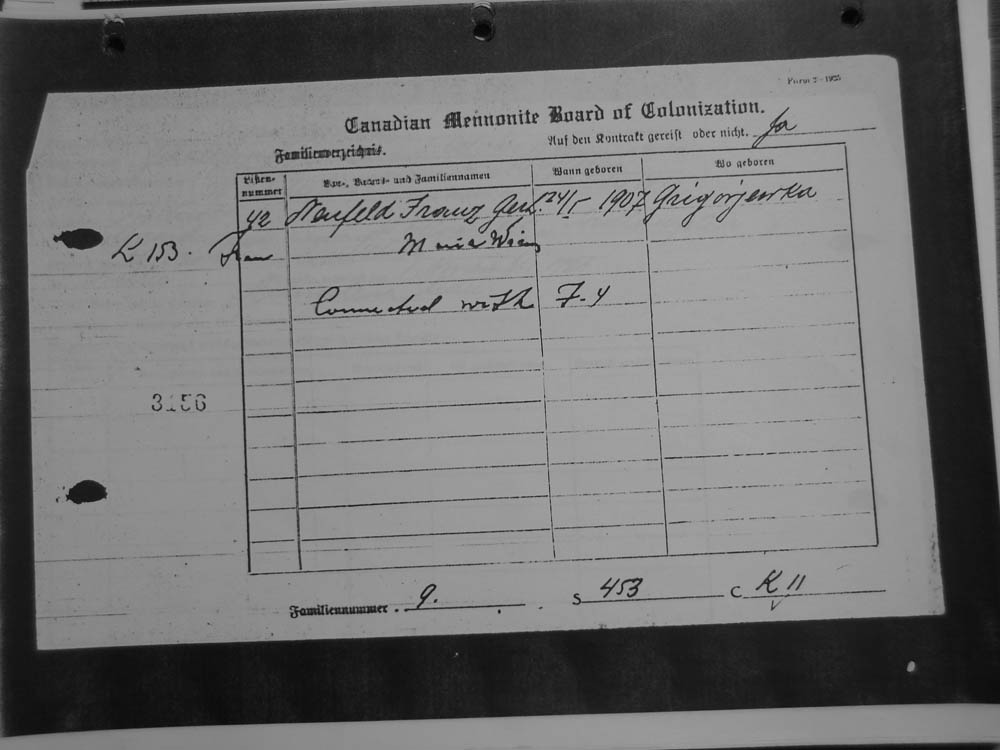 Form 2 - 1925
Canadian Mennonite Board of Colonization.
Auf den Kontrakt gereist oder nicht. Ja
Familienverzeichnis.
Listen-nummer Vor-, Vaters- und Familiennamen Wann geboren Wo geboren
42 Neufeld Franz Gerh. 24/5 1907 Grigorjewka
K 153. Frau Maria Wiens
Connected with F-4
3156
Familiennummer . 9. S 453 C K 11